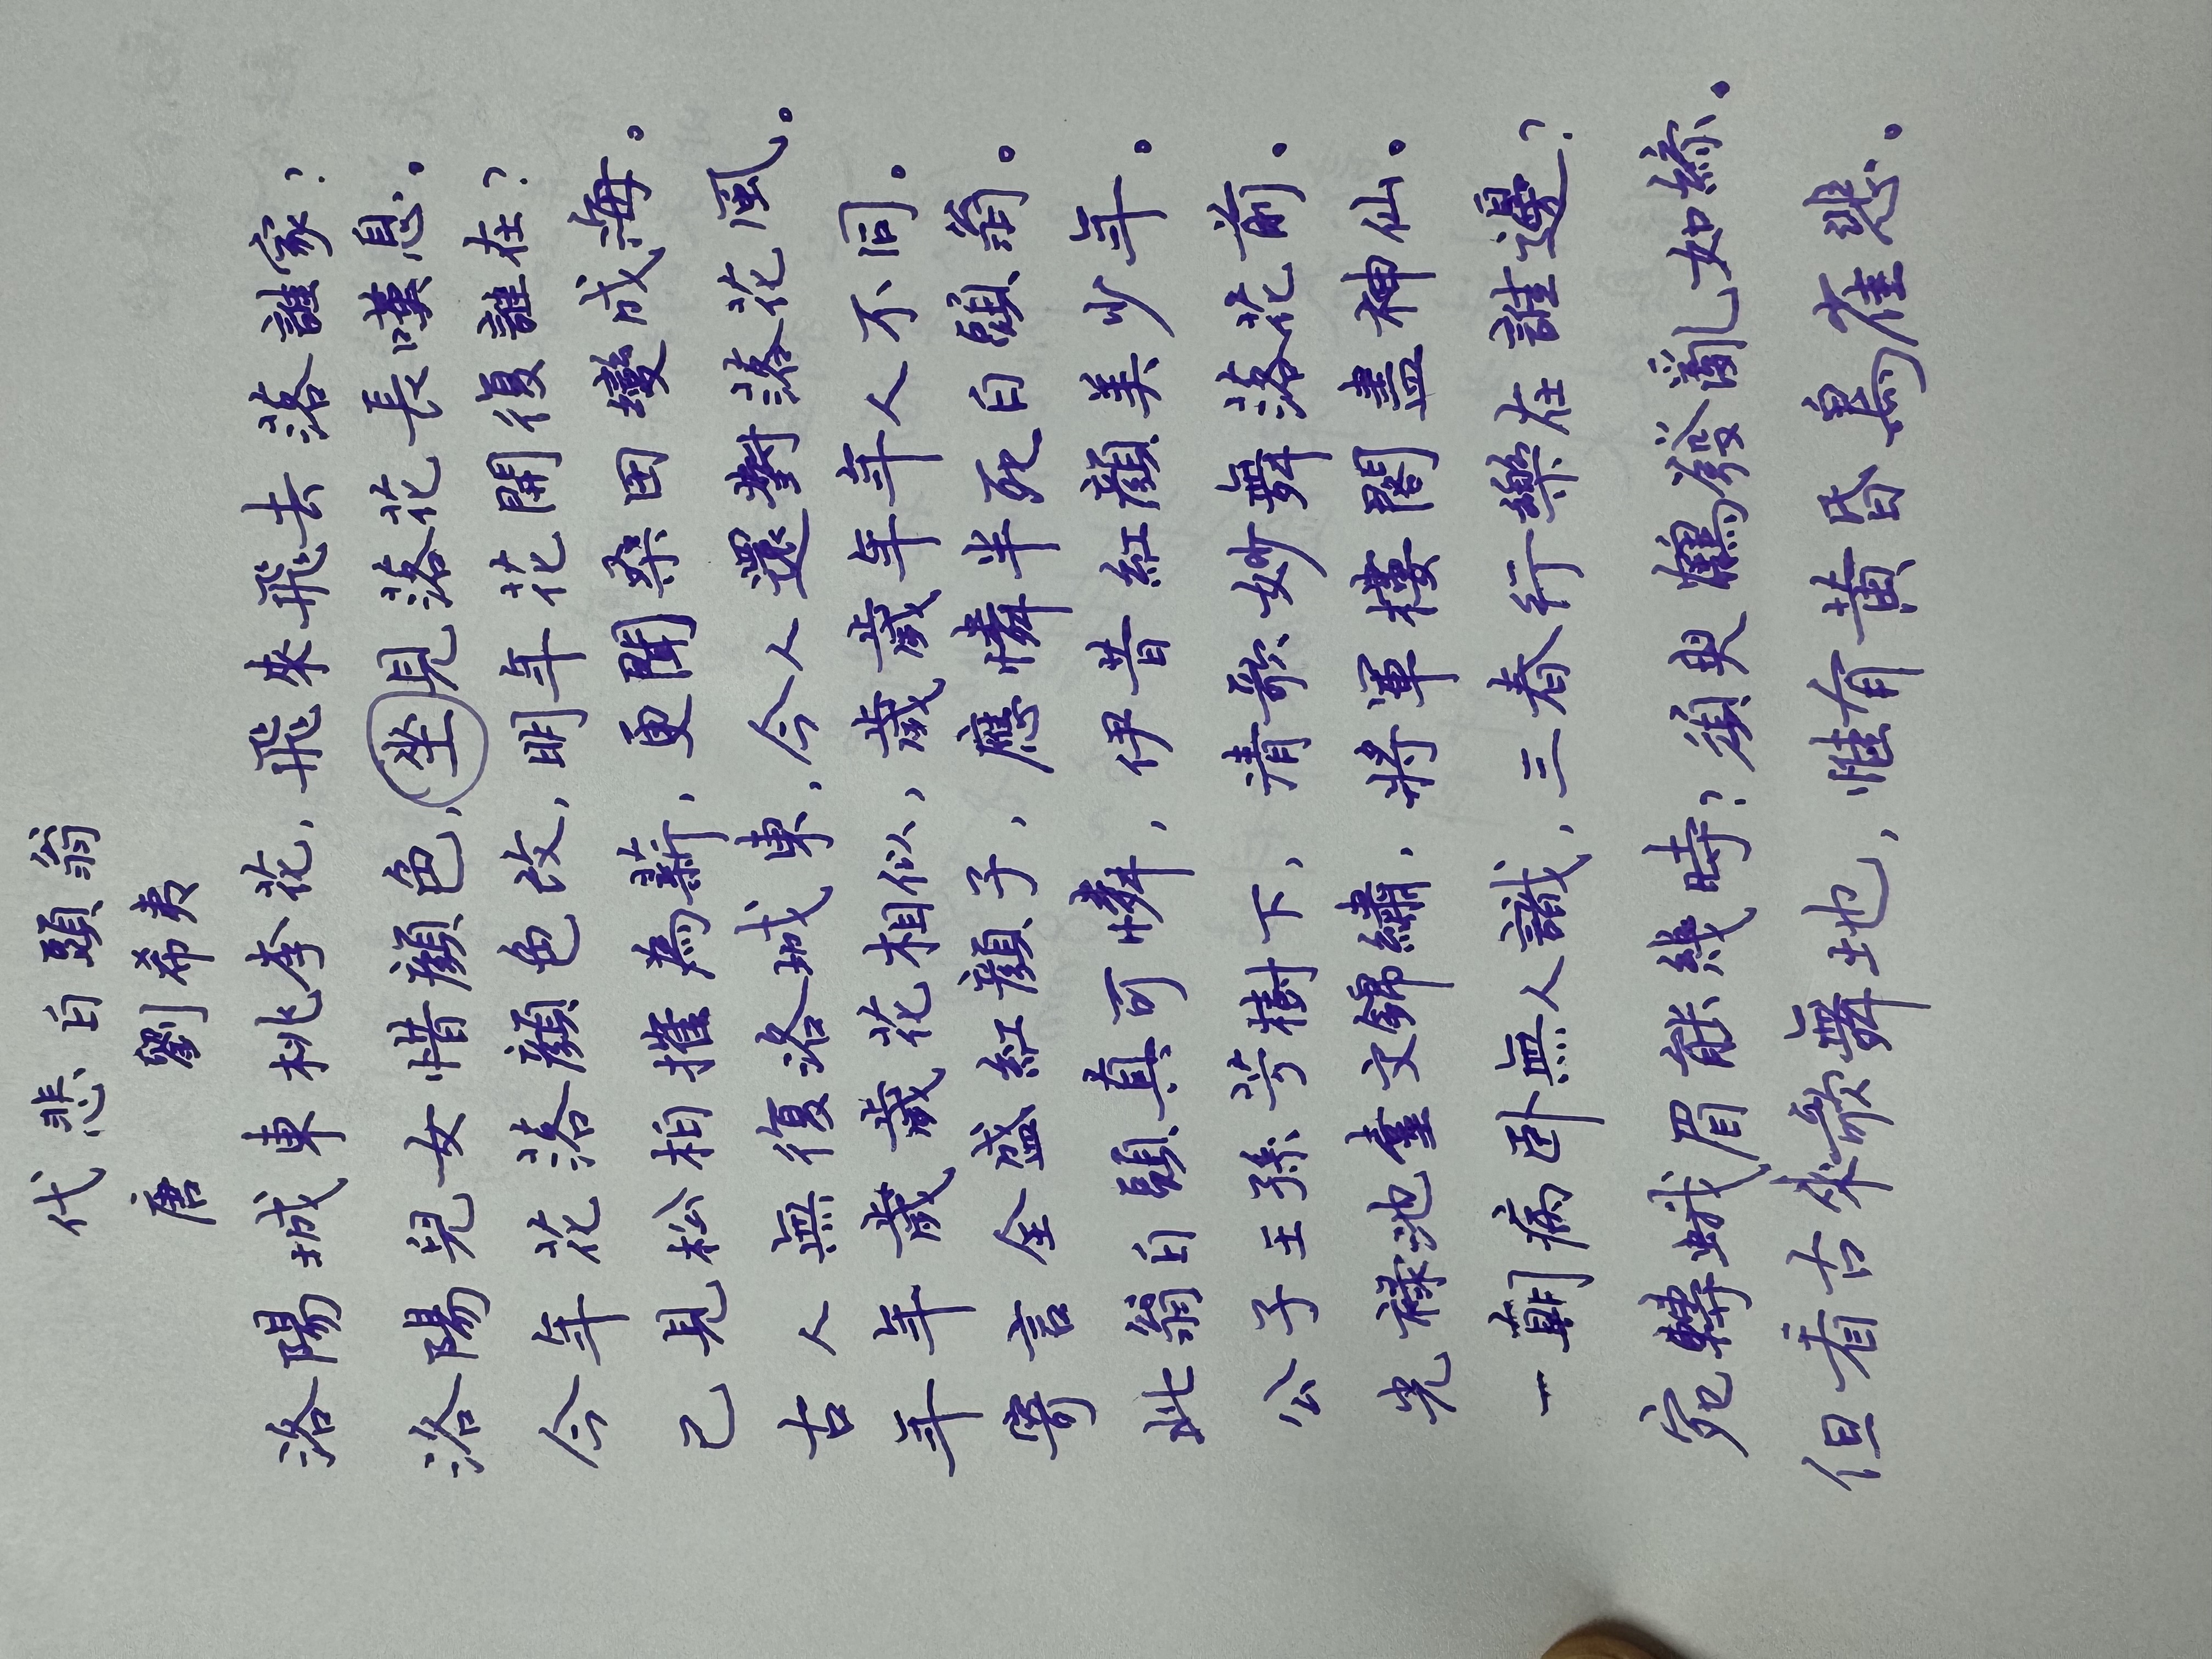 代悲白頭翁
唐 劉希夷
洛陽城東桃李花,飛來飛去落誰家?
洛陽兒女惜顏色,坐見落花長嘆息。
今年花落顏色改,明年花開復誰在?
已見松柏摧為薪,更聞桑田變成海。
古人無復洛城東,今人還對落花風。
年年歲歲花相似,歲歲年年人不同。
寄言全盛紅顏子,應憐半死白頭翁。
此翁白頭真可憐,伊昔紅顏美少年。
公子王孫芳樹下,清歌妙舞落花前。
光祿池臺文錦繡,將軍樓閣盡神仙。
一朝病臥無人識,三春行樂在誰邊?
宛轉蛾眉能幾時?須臾鶴發亂如絲。
但看古來歌舞地,惟有黃昏鳥雀悲。